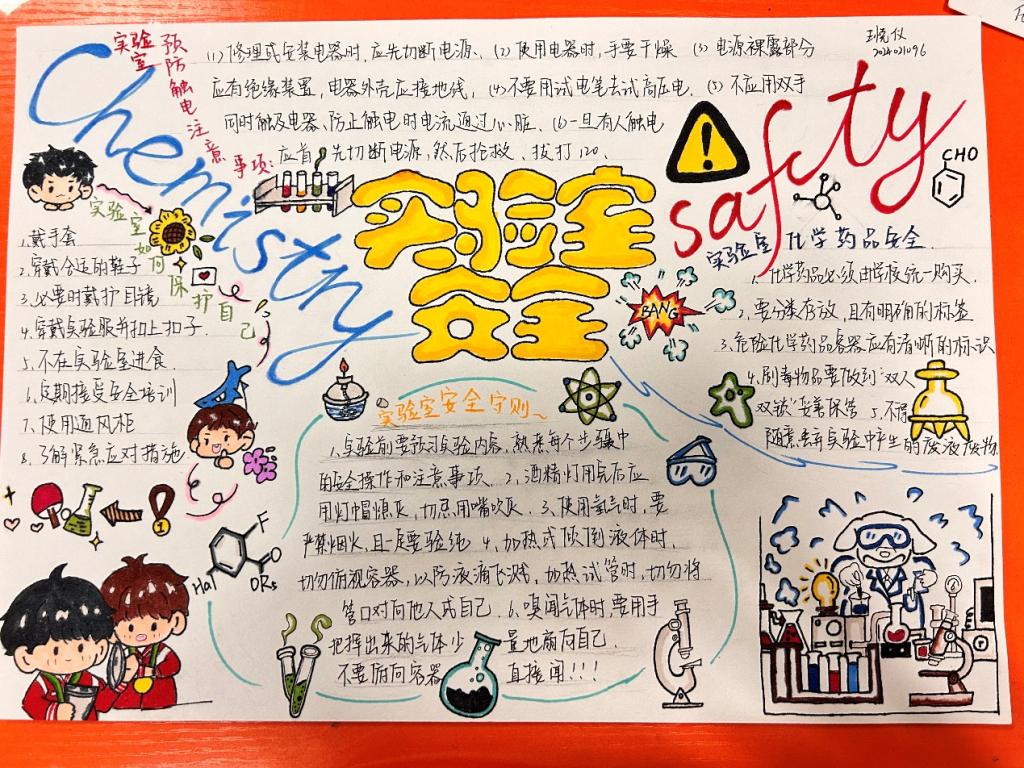 Chemistry
safety
实验室
预防触电注意
事项:
(1) 修理或安装电器时,应先切断电源、(2) 使用电器时,手要干燥 (3) 电源裸露部分
应有绝缘装置,电器外壳应接地线, (4)不要用试电笔去试高压电. (5) 不应用双手
同时触及电器,防止触电时电流通过心脏、(6)一旦有人触电
应首先切断电源,然后抢救、拨打120.
实验室
安全
实验室如何保护自己
1.戴手套
2.穿戴合适的鞋子
3.必要时戴护目镜
4.穿戴实验服并扣上扣子.
5.不在实验室进食
6.定期接受安全培训
7.使用通风柜
8.了解紧急应对措施
BANG
CHO
实验室 化学药品安全.
1.化学药品必须由学校统一购买.
2.要分类存放,且有明确的标签
3.危险化学药品容器应有清晰的标识
4.剧毒物品要做到“双人
双锁”妥善保管 5.不得
随意丢弃实验中产生的废液废物.
实验室安全守则~
1.实验前要预习实验内容,熟悉每个步骤中
的安全操作和注意事项. 2、酒精灯用完后应
用灯帽熄灭,切忌用嘴吹灭. 3、使用氢气时,要
严禁烟火,且一定要验纯 4、加热或倾倒液体时,
切勿俯视容器,以防液滴飞溅,加热试管时,切勿将
管口对向他人或自己. 6.嗅闻气体时,要用手
把挥出来的气体少量地扇向自己
不要俯向容器直接闻!!!
F
O
Hal
ORs